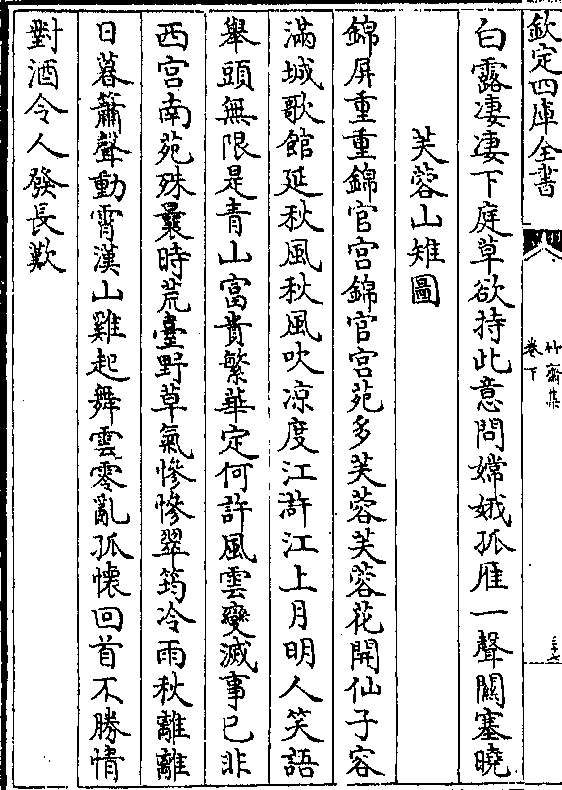 欽定四庫全書
竹齋集
卷下
三七
白露凄凄下庭草欲持此意問嫦娥孤雁一聲關塞曉
芙蓉山雉圖
錦屏重重錦官宫錦官宫苑多芙蓉芙蓉花開仙子容
滿城歌館延秋風秋風吹凉度江滸江上月明人笑語
舉頭無限是青山富貴繁華定何許風雲變滅事已非
西宫南苑殊曩時荒臺野草氣慘慘翠筠冷雨秋離離
日暮簫聲動霄漢山雞起舞雲零亂孤懷回首不勝情
對酒令人發長歎